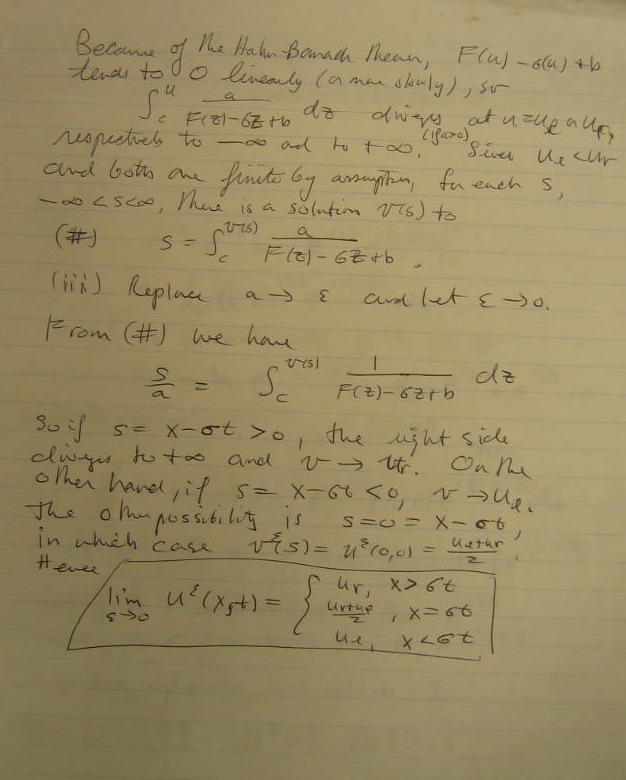 Because of the Hahn-Banach Theorem, F(u) - σ(u) + b
tends to 0 linearly (or more slowly), so
∫_c^u a/(F(z)-σz+b) dz diverges at u=u_l or u_r,
respectively to -∞ and to +∞. (if a>0) Since u_l < u_r
and both are finite by assumption, for each s,
-∞ < s < ∞, there is a solution v(s) to
(#) s = ∫_c^{v(s)} a/(F(z)-σz+b).
(iii) Replace a → ε and let ε → 0.
From (#) we have
s/a = ∫_c^{v(s)} 1/(F(z)-σz+b) dz
So if s = x-σt > 0, the right side
diverges to +∞ and v → u_r. On the
other hand, if s = x-σt < 0, v → u_l.
The other possibility is s=0 = x-σt,
in which case v^ε(s) = u^ε(0,0) = (u_l+u_r)/2.
Hence
lim_{ε→0} u^ε(x,t) = { u_r, x > σt
(u_r+u_l)/2, x = σt
u_l, x < σt